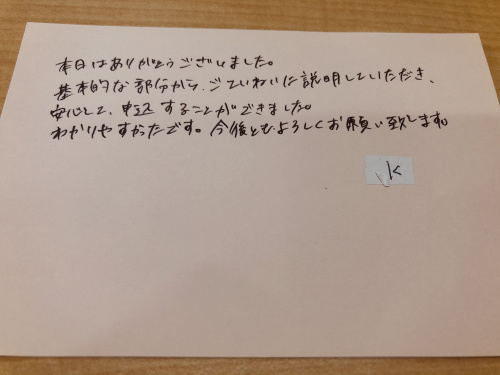 本日はありがとうございました。
基本的な部分から、ごていねいに説明していただき、
安心して、申込することができました。
わかりやすかったです。今後ともよろしくお願い致します。
K